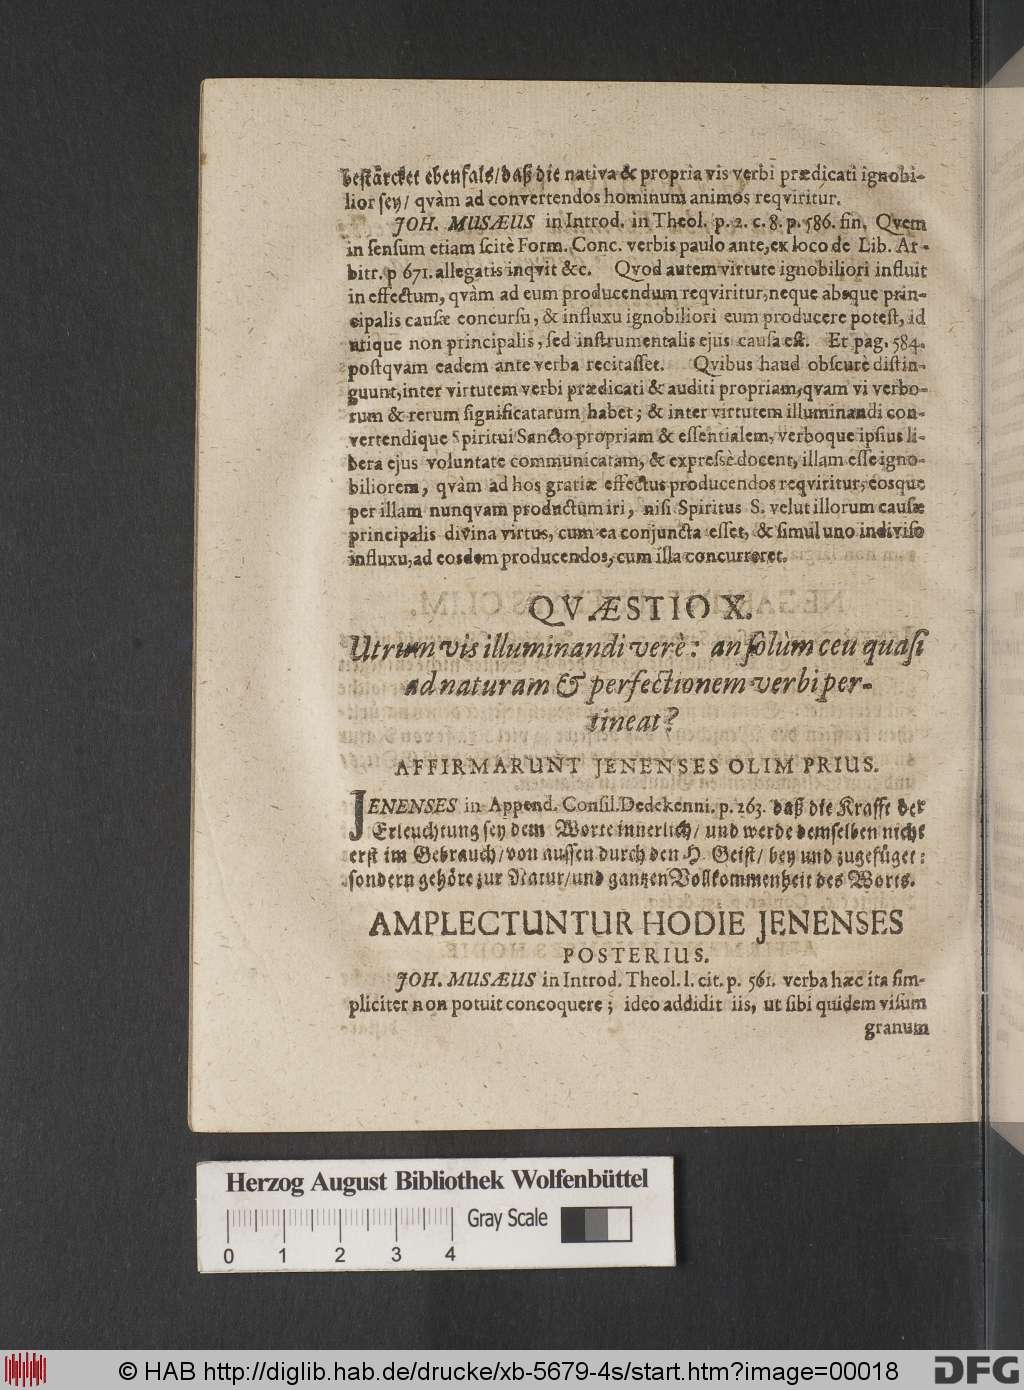 bestärcket ebenfals/daß die nativa & propria vis verbi prædicati ignobi-
lior sey/ qvàm ad convertendos hominum animos reqviritur.
JOH. MUSÆUS in Introd. in Theol. p. 2. c. 8. p. 586. fin. Qvem
in sensum etiam scitè Form. Conc. verbis paulo ante, ex loco de Lib. Ar-
bitr. p 671. allegatis inqvit &c. Qvod autem virtute ignobiliori influit
in effectum, qvàm ad eum producendum reqviritur, neque absque prin-
cipalis causæ concursu, & influxu ignobiliori eum producere potest, id
utique non principalis, sed instrumentalis ejus causa est. Et pag. 584.
postqvam eadem ante verba recitasset. Qvibus haud obscurè distin-
guunt, inter virtutem verbi prædicati & auditi propriam, qvam vi verbo-
rum & rerum significatarum habet; & inter virtutem illuminandi con-
vertendique Spiritui Sancto propriam & essentialem, verboque ipsius li-
bera ejus voluntate communicatam, & expressè docent, illam esse igno-
biliorem, qvàm ad hos gratiæ effectus producendos reqviritur, eosque
per illam nunqvam productum iri, nisi Spiritus S. velut illorum causæ
principalis divina virtus, cum ea conjuncta esset, & simul uno indiviso
influxu, ad eosdem producendos, cum illa concurreret.
QVÆSTIO X.
Utrum vis illuminandi verè: an solùm ceu quasi
ad naturam & perfectionem verbi per-
tineat?
AFFIRMARUNT JENENSES OLIM PRIUS.
JENENSES in Append. Consil. Dedekenni. p. 263. daß die Krafft der
Erleuchtung sey dem Worte innerlich/ und werde demselben nicht
erst im Gebrauch/ von aussen durch den H. Geist/ bey und zugefüget:
sondern gehöre zur Natur/ und gantzen Vollkommenheit des Worts.
AMPLECTUNTUR HODIE JENENSES
POSTERIUS.
JOH. MUSÆUS in Introd. Theol. l. cit. p. 561. verba hæc ita sim-
pliciter non potuit concoquere; ideo addidit iis, ut sibi quidem visum
granum
Herzog August Bibliothek Wolfenbüttel
Gray Scale
0 1 2 3 4
© HAB http://diglib.hab.de/drucke/xb-5679-4s/start.htm?image=00018
DFG